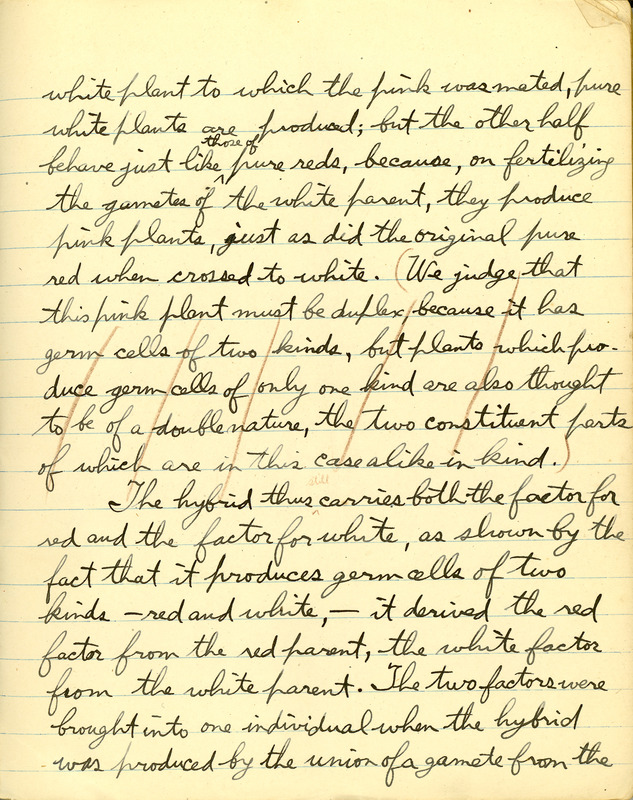 white plant to which the pink was mated, pure
white plants are produced; but the other half
those of
behave just like pure reds, because, on fertilizing
the gametes of the white parent, they produce
pink plants, just as did the original pure
red when crossed to white. (We judge that
this pink plant must be duplex, because it has
germ cells of two kinds, but plants which pro-
duce germ cells of only one kind are also thought
to be of a double nature, the two constituent parts
of which are in this case alike in kind.)
still
The hybrid thus carries both the factor for
red and the factor for white, as shown by the
fact that it produces germ cells of two
kinds – red and white, – it derived the red
factor from the red parent, the white factor
from the white parent. The two factors were
brought into one individual when the hybrid
was produced by the union of a gamete from the